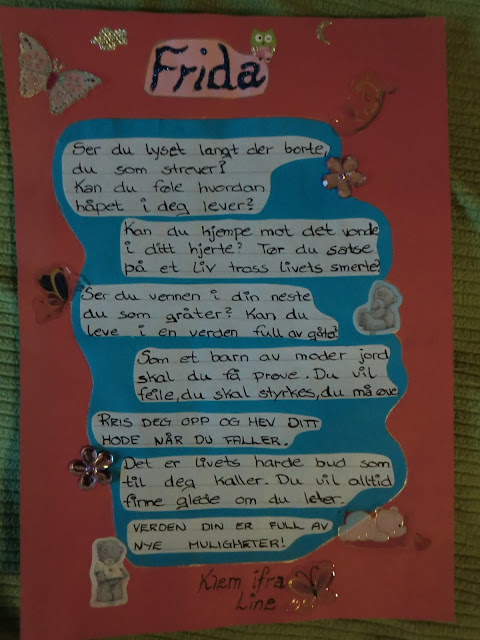 Frida
Ser du lyset langt der borte,
du som strever?
Kan du føle hvordan
håpet i deg lever?
Kan du kjempe mot det vonde
i ditt hjerte? Tør du satse
på et liv tross livets smerte?
Ser du vennen i din neste
du som gråter? Kan du
leve i en verden full av gåter?
Som et barn av moder jord
skal du få prøve. Du vil
feile, du skal styrkes, du må øve
RREIS DEG OPP OG HEV DITT
HODE NÅR DU FALLER.
Det er livets harde bud som
til deg kaller. Du vil alltid
finne glede om du leter.
VERDEN DIN ER FULL AV
NYE MULIGHETER!
Klem ifra
Line